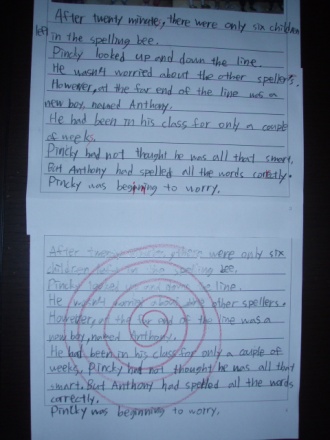 After twenty minute, there were only six children
left in the spelling bee.
Pincky looked up and down the line.
He wasn't worried about the other spellers.
However, at the far end of the line was a
new boy, named Anthony.
He had been in his class for only a couple
of weeks.
Pincky had not thought he was all that smart.
But Anthony had spelled all the words correctly.
Pincky was beginning to worry.
After twenty there were only six
children left in the spelling bee.
Pincky looked up and down the line.
He wasn't worried about the other spellers.
However, at the far end of the line was a
new boy, named Anthony.
He had been in his class for only a couple of
weeks. Pincky had not thought he was all that
smart. But Anthony had spelled all the words
correctly.
Pincky was beginning to worry.